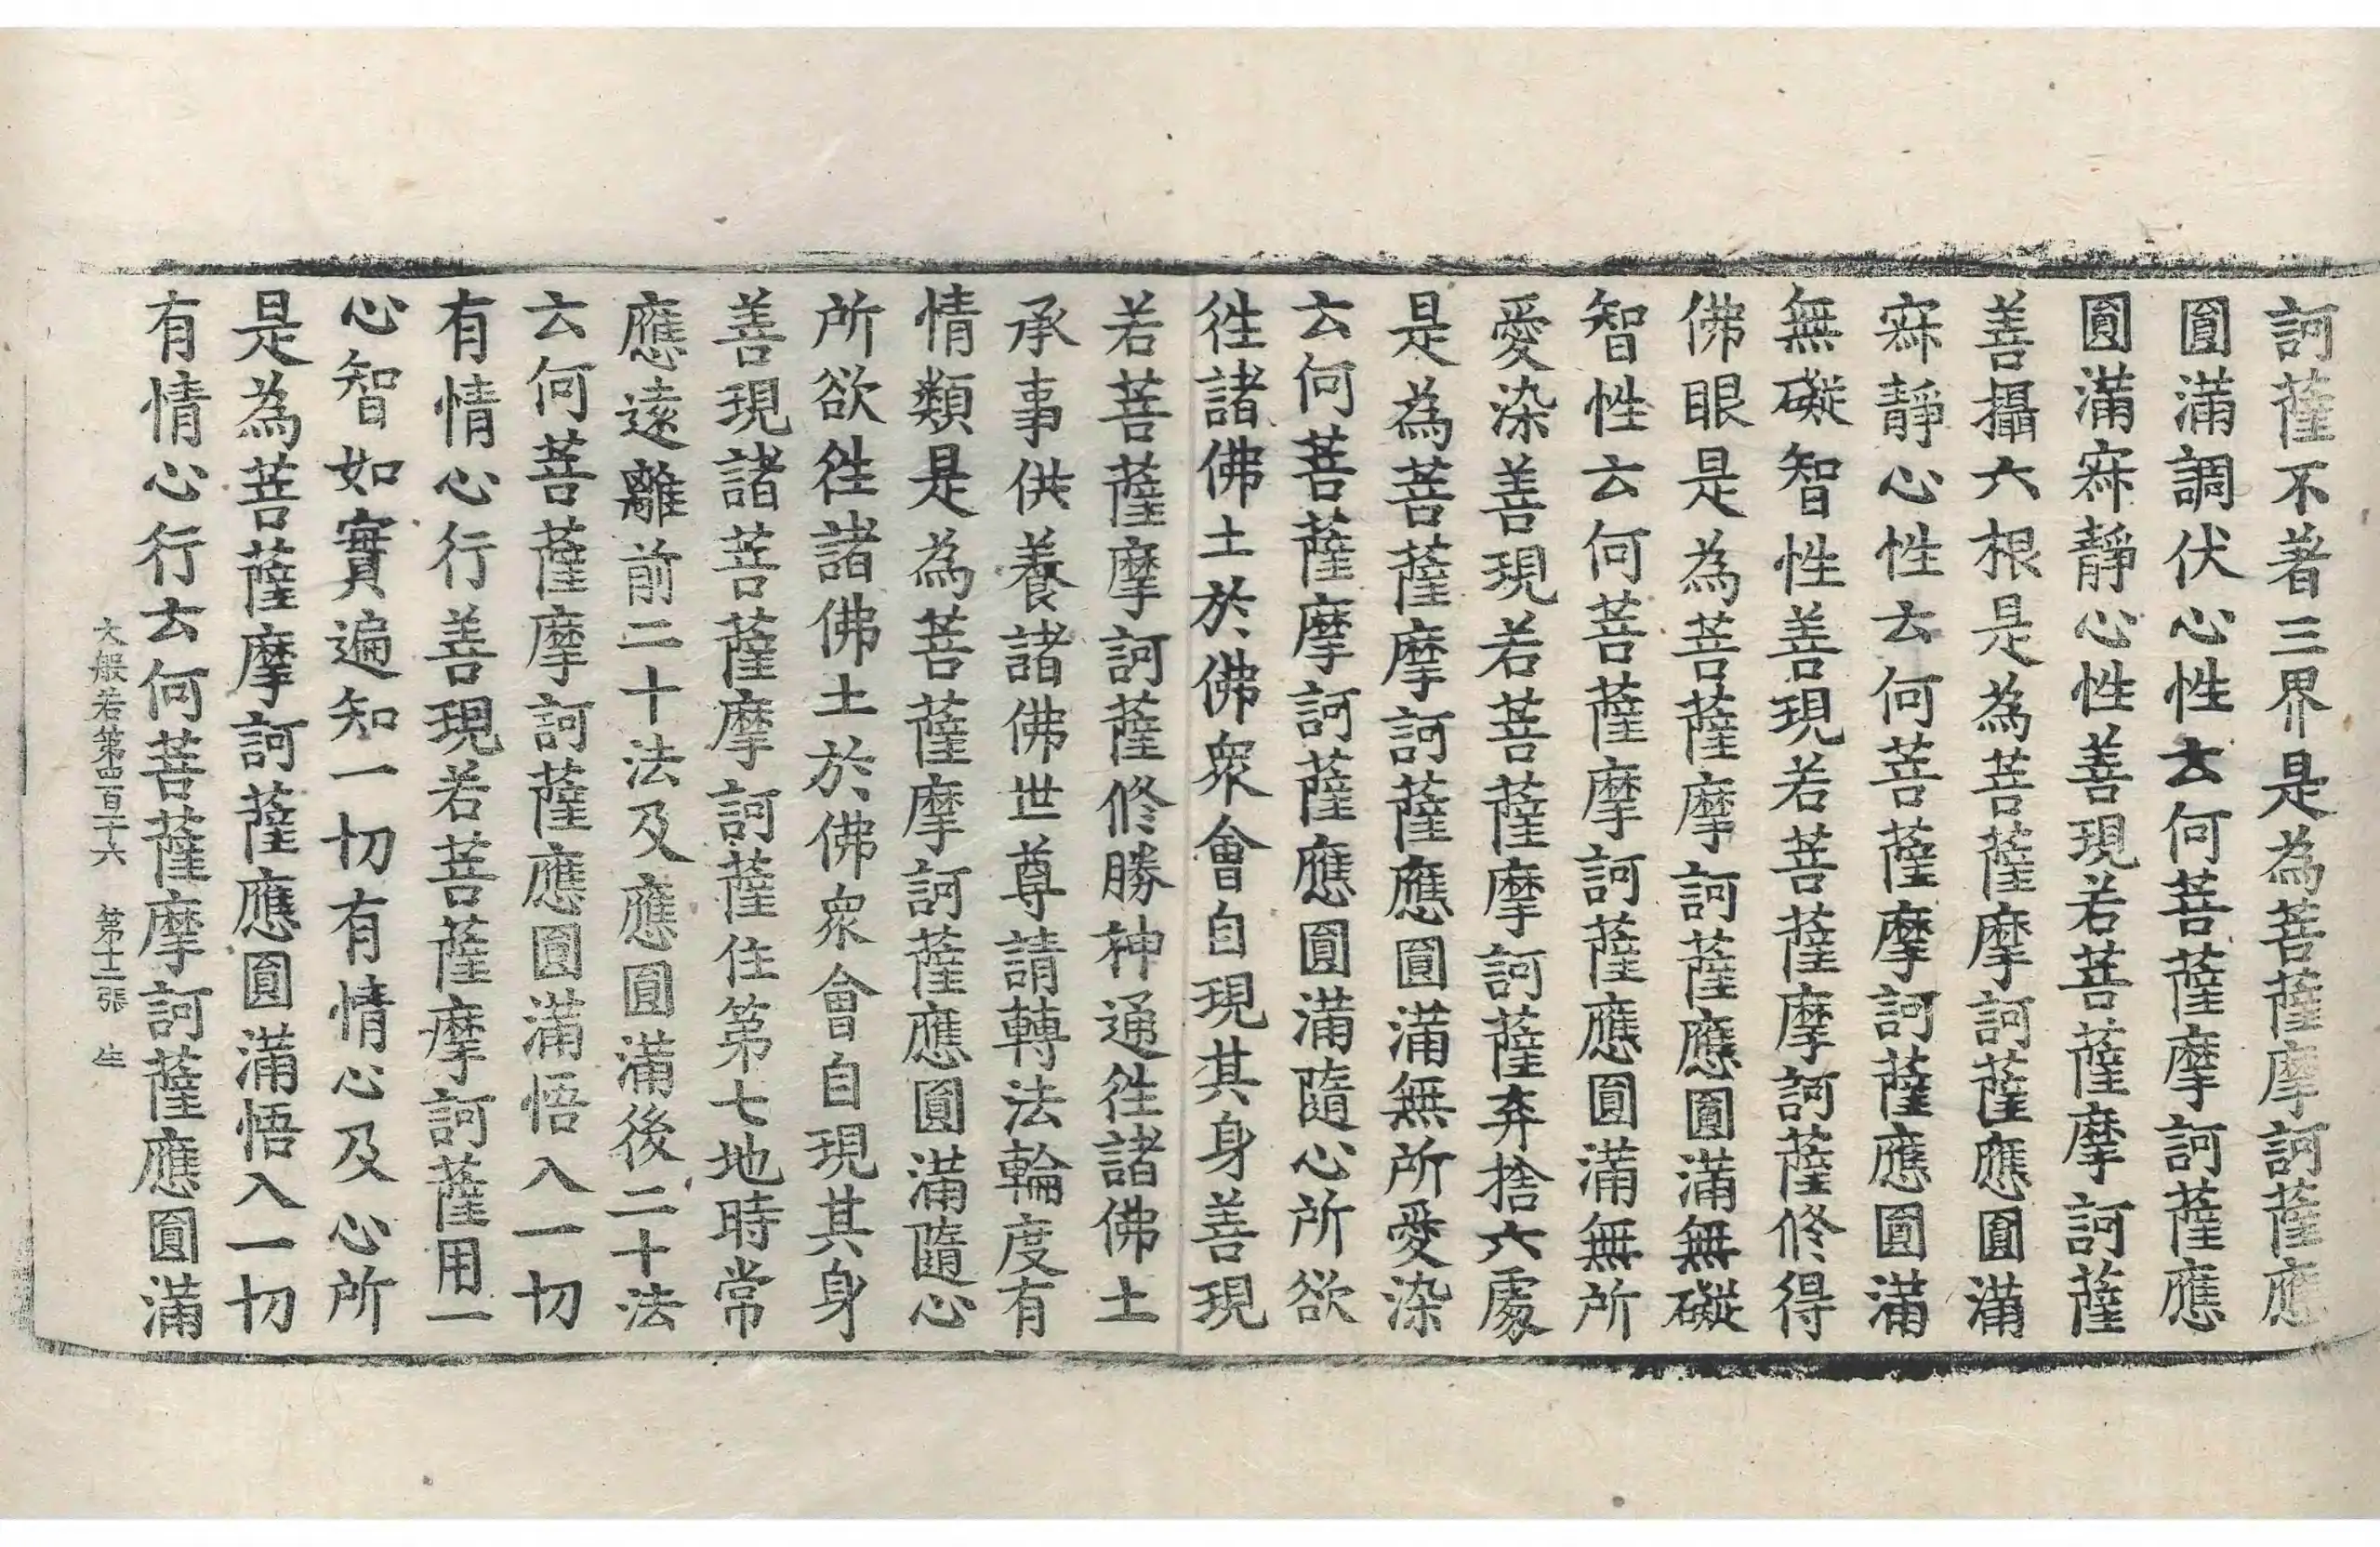 訶薩不著三界是為菩薩摩訶薩應
圓滿調伏心性云何菩薩摩訶薩應
圓滿寂靜心性善現若菩薩摩訶薩
善攝六根是為菩薩摩訶薩應圓滿
寂靜心性云何菩薩摩訶薩應圓滿
無礙智性善現若菩薩摩訶薩修得
佛眼是為菩薩摩訶薩應圓滿無礙
智性云何菩薩摩訶薩應圓滿無所
愛染善現若菩薩摩訶薩弃捨六處
是為菩薩摩訶薩應圓滿無所愛染
云何菩薩摩訶薩應圓滿隨心所欲
徃諸佛土於佛衆會自現其身善現
若菩薩摩訶薩修勝神通徃諸佛土
承事供養諸佛世尊請轉法輪度有
情類是為菩薩摩訶薩應圓滿隨心
所欲徃諸佛土於佛衆會自現其身
善現諸菩薩摩訶薩住第七地時常
應遠離前二十法及應圓滿後二十法
云何菩薩摩訶薩應圓滿悟入一切
有情心行善現若菩薩摩訶薩用一
心智如實遍知一切有情心及心所
是為菩薩摩訶薩應圓滿悟入一切
有情心行云何菩薩摩訶薩應圓滿
大般若第四百十六 第十二張